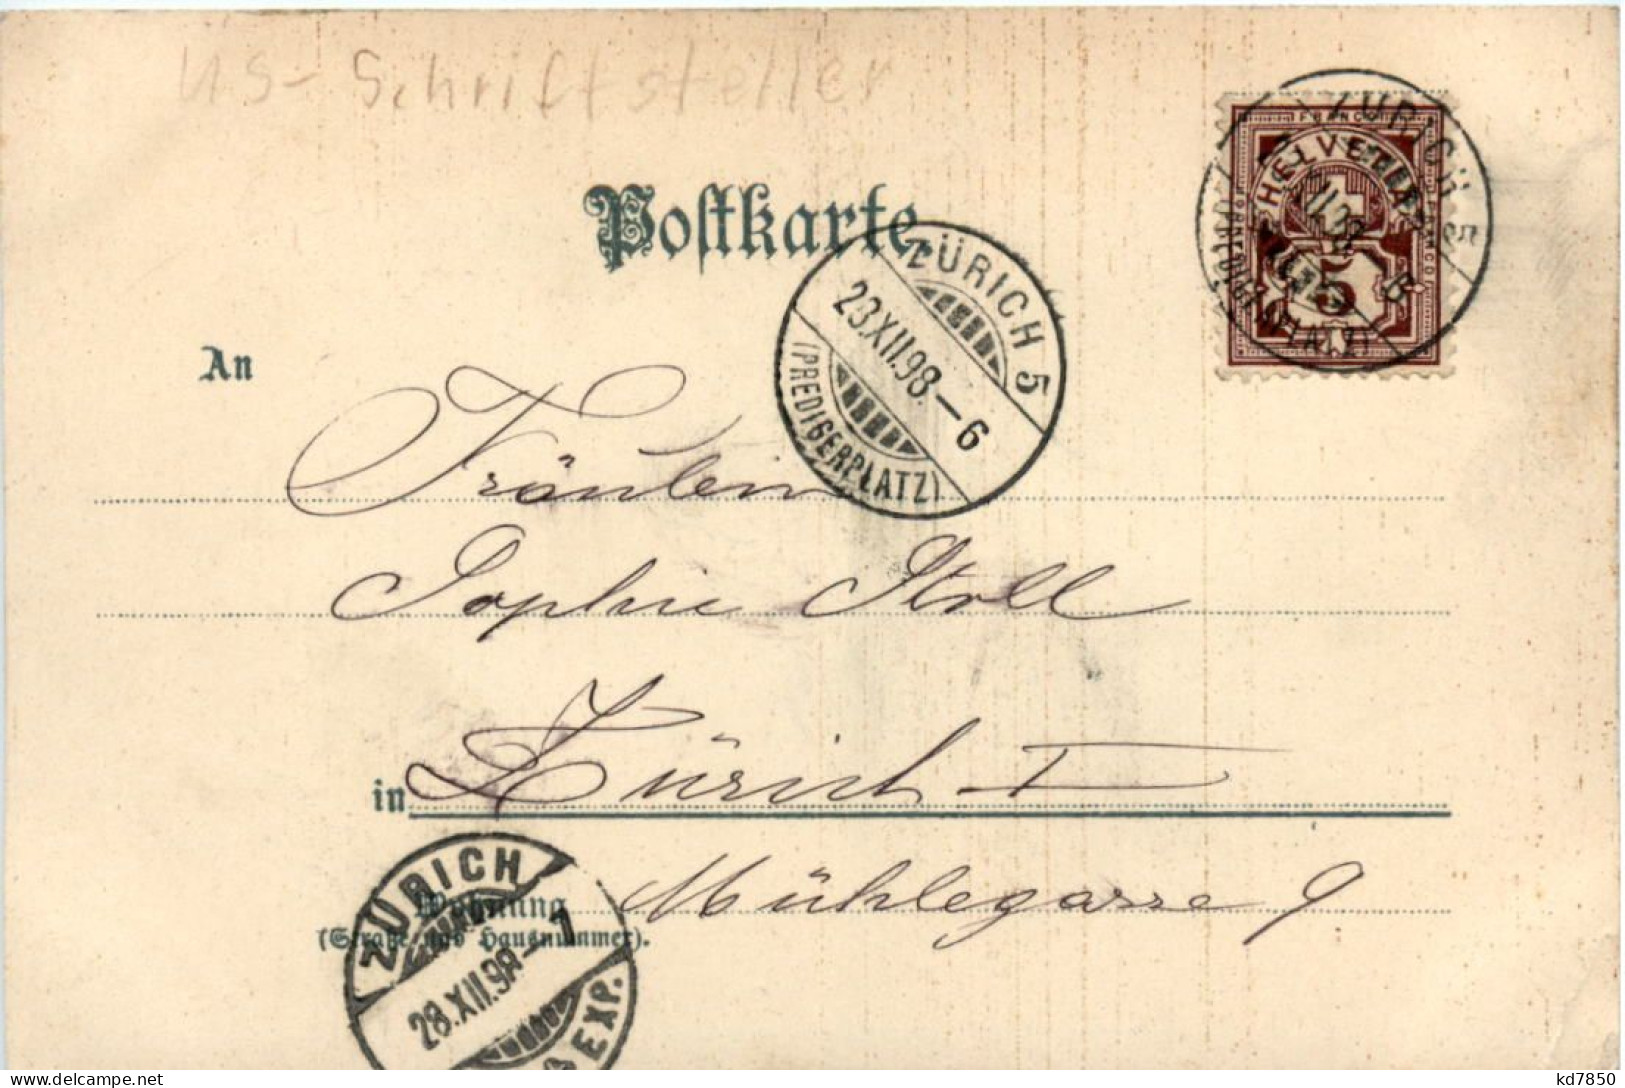 US-Schriftsteller
Postkarte.
FRANCO
HELVETIA
FRANCO
5
ZÜRICH
(PREDIGERPLATZ)
ZÜRICH 5
23.XII.98.-6
(PREDIGERPLATZ)
An
Fräulein
Sophie Stoll
in Zürich I
Mühlegasse 9
Wohnung
(Straße und Hausnummer).
ZÜRICH
28.XII.98-7
EXP.
kd7850